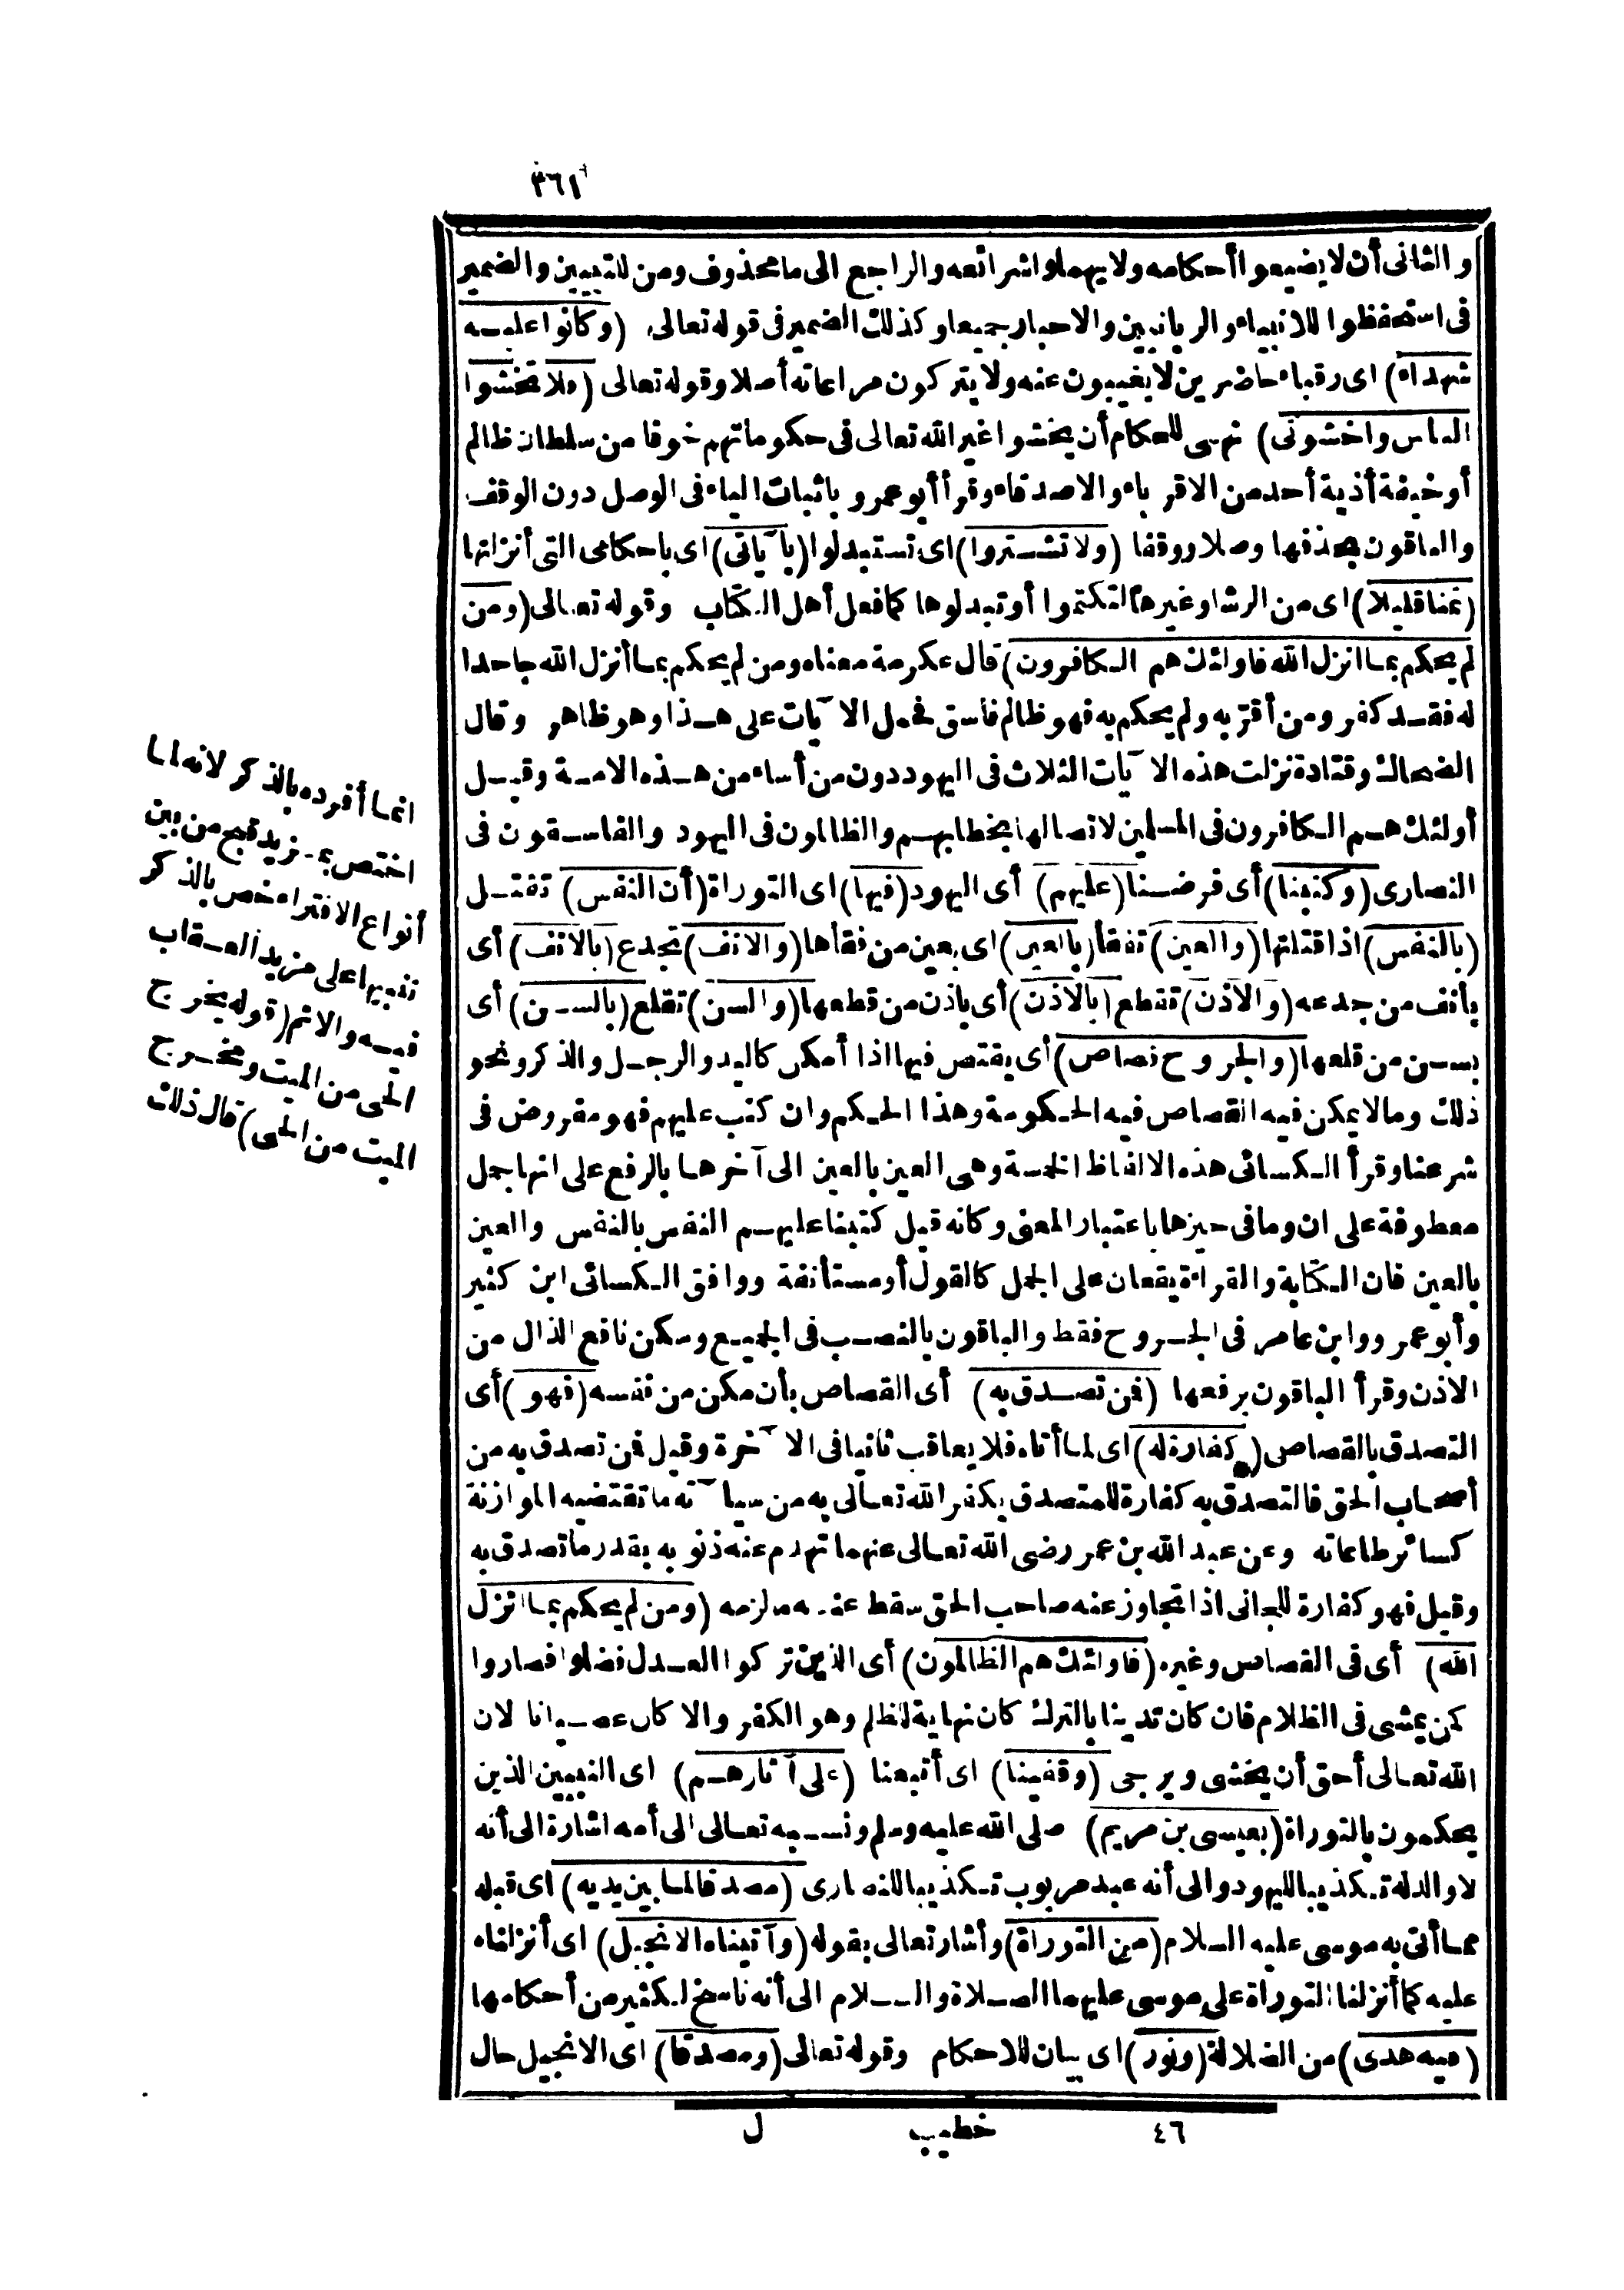 ٣٦١
والثانى أن لا يضيعوا أحكامه ولا يهملوا شرائعه والراجع الى ما محذوف ومن للتبيين والضمير
فى استحفظوا للانبياء والربانيين والاحبار جميعا وكذلك الضمير فى قوله تعالى (وكانوا عليه
شهداء) اى رقباء حاضرين لا يغيبون عنه ولا يتركون مراعاته أصلا وقوله تعالى (فلا تخشوا
الناس واخشونى) نهى للحكام أن يخشوا غير الله تعالى فى حكوماتهم خوفا من سلطان ظالم
أو خيفة أذية أحد من الاقرباء والاصدقاء وقرأ أبو عمرو باثبات الياء فى الوصل دون الوقف
والباقون بحذفها وصلا ووقفا (ولا تشتروا) اى تستبدلوا (بآياتى) اى باحكامى التى أنزلتها
(ثمنا قليلا) اى من الرشا وغيرها لتكتموا أو تبدلوها كما فعل أهل الكتاب وقوله تعالى (ومن
لم يحكم بما انزل الله فاولئك هم الكافرون) قال عكرمة معناه ومن لم يحكم بما أنزل الله جاحدا
له فقد كفر ومن أقرّ به ولم يحكم به فهو ظالم فاسق فحمل الآيات على هذا وهو ظاهر وقال
الضحاك وقتادة نزلت هذه الآيات الثلاث فى اليهود دون من أساء من هذه الامة وقيل
أولئك هم الكافرون فى المسلمين لاتصالها بخطابهم والظالمون فى اليهود والفاسقون فى
النصارى (وكتبنا) أى فرضنا (عليهم) أى اليهود (فيها) اى التوراة (أن النفس) تقتل
(بالنفس) اذا قتلتها (والعين) تفقأ (بالعين) اى بعين من فقأها (والانف) تجدع (بالانف) أى
بأنف من جدعه (والاذن) تقطع (بالاذن) أى باذن من قطعها (والسن) تقلع (بالسن) أى
بسن من قلعها (والجروح قصاص) أى يقتص فيها اذا أمكن كاليد والرجل والذكر ونحو
ذلك وما لا يمكن فيه القصاص فيه الحكومة وهذا الحكم وان كتب عليهم فهو مقروض فى
شرعنا وقرأ الكسائى هذه الالفاظ الخمسة وهى العين بالعين الى آخرها بالرفع على انها جمل
معطوفة على ان وما فى حيزها باعتبار المعنى وكانه قيل كتبنا عليهم النفس بالنفس والعين
بالعين فان الكتابة والقراءة يقعان على الجمل كالقول أو مستأنفة ووافق الكسائى ابن كثير
وأبو عمرو وابن عامر فى الجروح فقط والباقون بالنصب فى الجميع وسكن نافع الذال من
الاذن وقرأ الباقون برفعها (فمن تصدق به) أى القصاص بأن مكن من نفسه (فهو) أى
التصدق بالقصاص (كفارة له) اى لما أتاه فلا يعاقب ثانيا فى الآخرة وقيل فمن تصدق به من
أصحاب الحق فالتصدق به كفارة للمتصدق يكفر الله تعالى به من سيآته ما تقتضيه الموازنة
كسائر طاعاته وعن عبد الله بن عمر رضى الله تعالى عنهما تهدم عنه ذنوبه بقدر ما تصدق به
وقيل فهو كفارة للجانى اذا تجاوز عنه صاحب الحق سقط عنه ما لزمه (ومن لم يحكم بما انزل
الله) أى فى القصاص وغيره (فاولئك هم الظالمون) أى الذين تركوا العدل فضلوا فصاروا
كمن يمشى فى الظلام فان كان تدينا بالترك كان نهاية لظلم وهو الكفر والا كان عصيانا لان
الله تعالى أحق أن يخشى ويرجى (وقفينا) اى أتبعنا (على آثارهم) اى النبيين الذين
يحكمون بالتوراة (بعيسى بن مريم) صلى الله عليه وسلم ونسبه تعالى الى أمه اشارة الى أنه
لا والد له تكذيبا لليهود والى أنه عبد مربوب تكذيبا للنصارى (مصدقا لما بين يديه) اى قبله
مما أتى به موسى عليه السلام (من التوراة) وأشار تعالى بقوله (وآتيناه الانجيل) اى أنزلناه
عليه كما أنزلنا التوراة على موسى عليهما الصلاة والسلام الى أنه ناسخ لكثير من أحكامها
(فيه هدى) من الضلالة (ونور) اى بيان للاحكام وقوله تعالى (ومصدقا) اى الانجيل حال
٤٦ خطيب ل
انما أفرده بالذكر لانه لما
اختص بمزيد قبح من بين
أنواع الافتراء خص بالذكر
تنبيها على مزيد العقاب
فيه والاثم (قوله يخرج
الحى من الميت ومخرج
الميت من الحى) قال ذلك